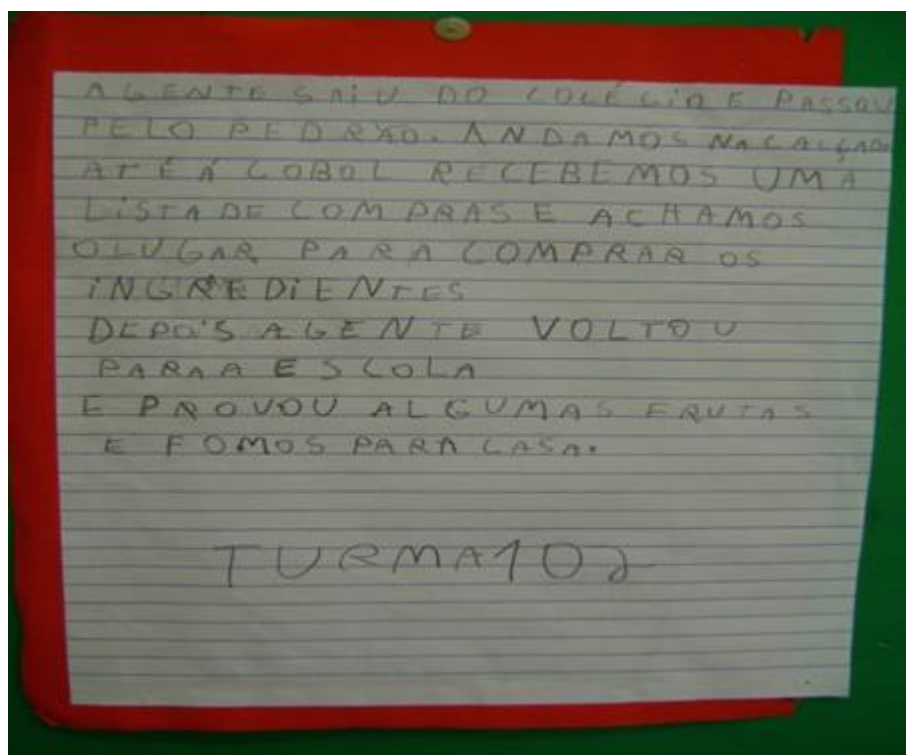 AGENTE SAIU DO COLÉGIO E PASSOU
PELO PEDRÃO. ANDAMOS NA CALÇADA
ATÉ A COBOL RECEBEMOS UMA
LISTA DE COMPRAS E ACHAMOS
OLUGAR PARA COMPRAR OS
INGREDIENTES
DEPOIS AGENTE VOLTOU
PARAA ESCOLA
E PROVOU ALGUMAS FRUTAS
E FOMOS PARA CASA.
TURMA102